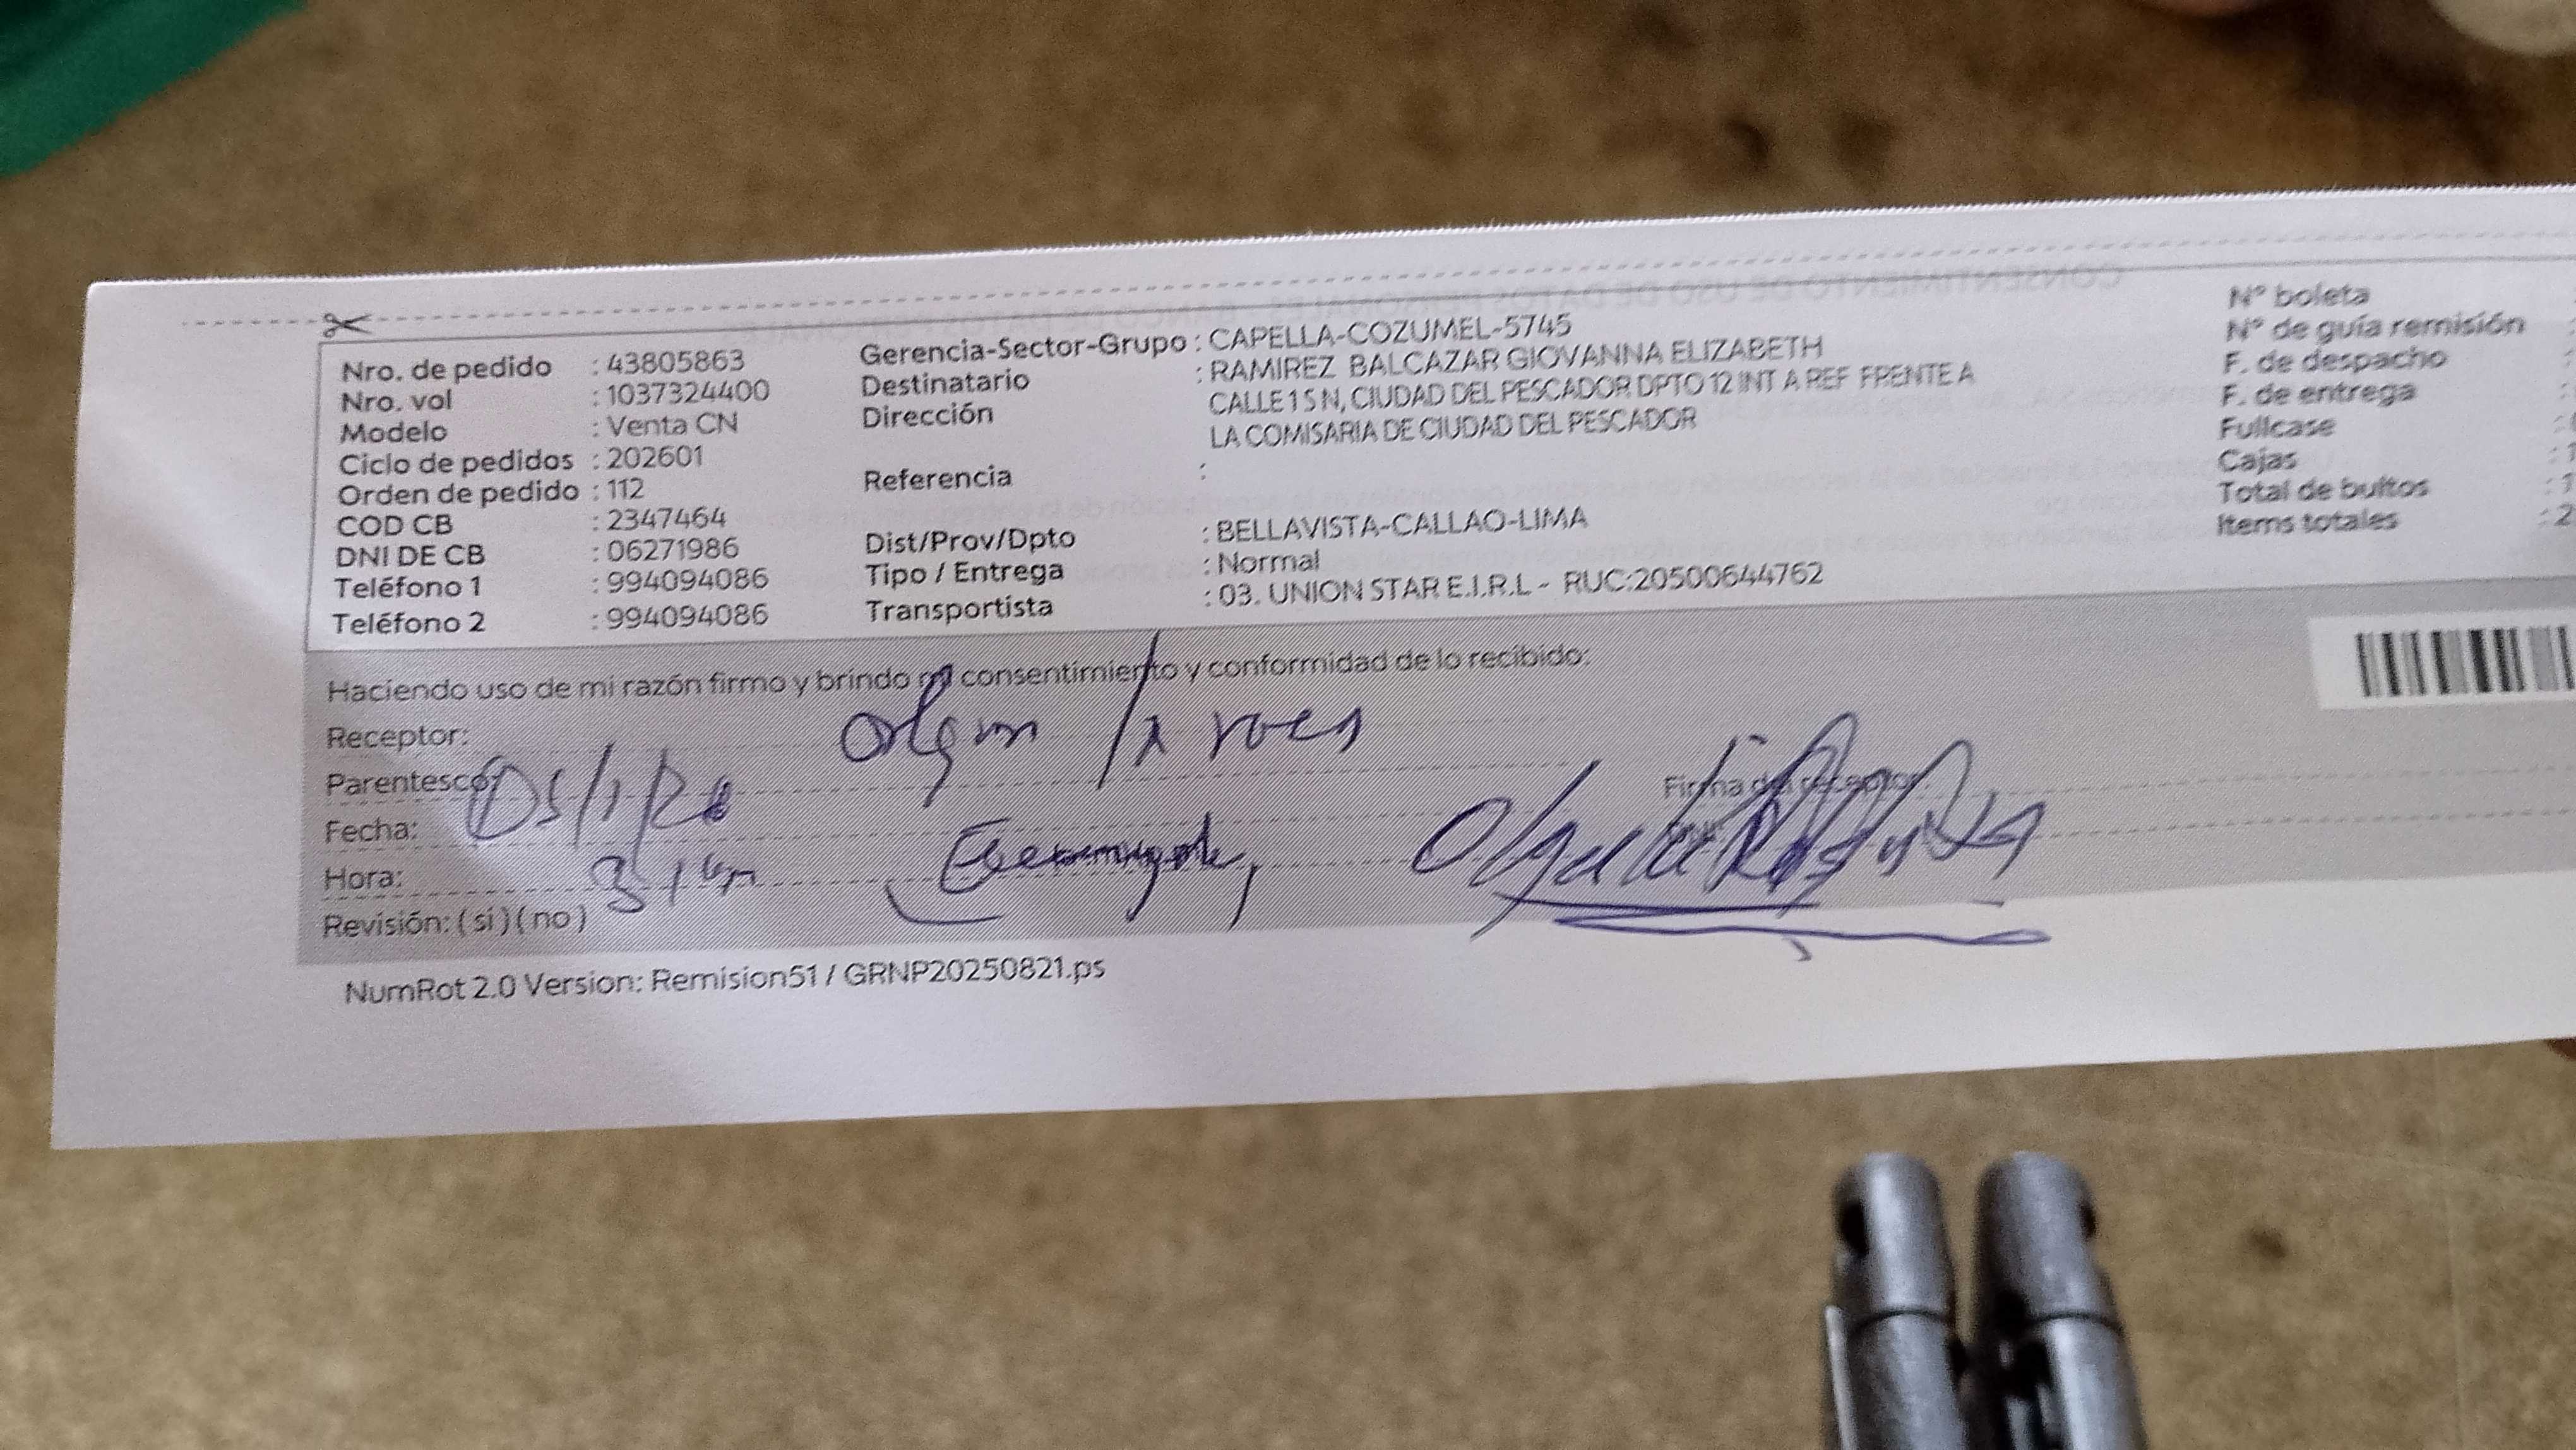 Nro. de pedido : 43805863
Nro. vol : 1037324400
Modelo : Venta CN
Ciclo de pedidos : 202601
Orden de pedido : 112
COD CB : 2347464
DNI DE CB : 06271986
Teléfono 1 : 994094086
Teléfono 2 : 994094086
Gerencia-Sector-Grupo : CAPELLA-COZUMEL-5745
Destinatario : RAMIREZ BALCAZAR GIOVANNA ELIZABETH
Dirección CALLE 1 S N, CIUDAD DEL PESCADOR DPTO 12 INT A REF FRENTE A
LA COMISARIA DE CIUDAD DEL PESCADOR
Referencia :
Dist/Prov/Dpto : BELLAVISTA-CALLAO-LIMA
Tipo / Entrega : Normal
Transportista : 03. UNION STAR E.I.R.L - RUC:20500644762
N° boleta
N° de guía remisión
F. de despacho
F. de entrega
Fullcase
Cajas : 1
Total de bultos : 1
Items totales : 2
Haciendo uso de mi razón firmo y brindo mi consentimiento y conformidad de lo recibido:
Receptor:
Parentesco:
Firma del receptor:
Fecha:
Hora:
Revisión: ( si ) ( no )
NumRot 2.0 Version: Remision51 / GRNP20250821.ps